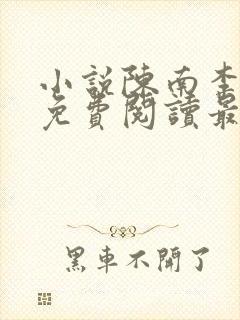 小說陳南李
免費閱讀最
黑車不開了